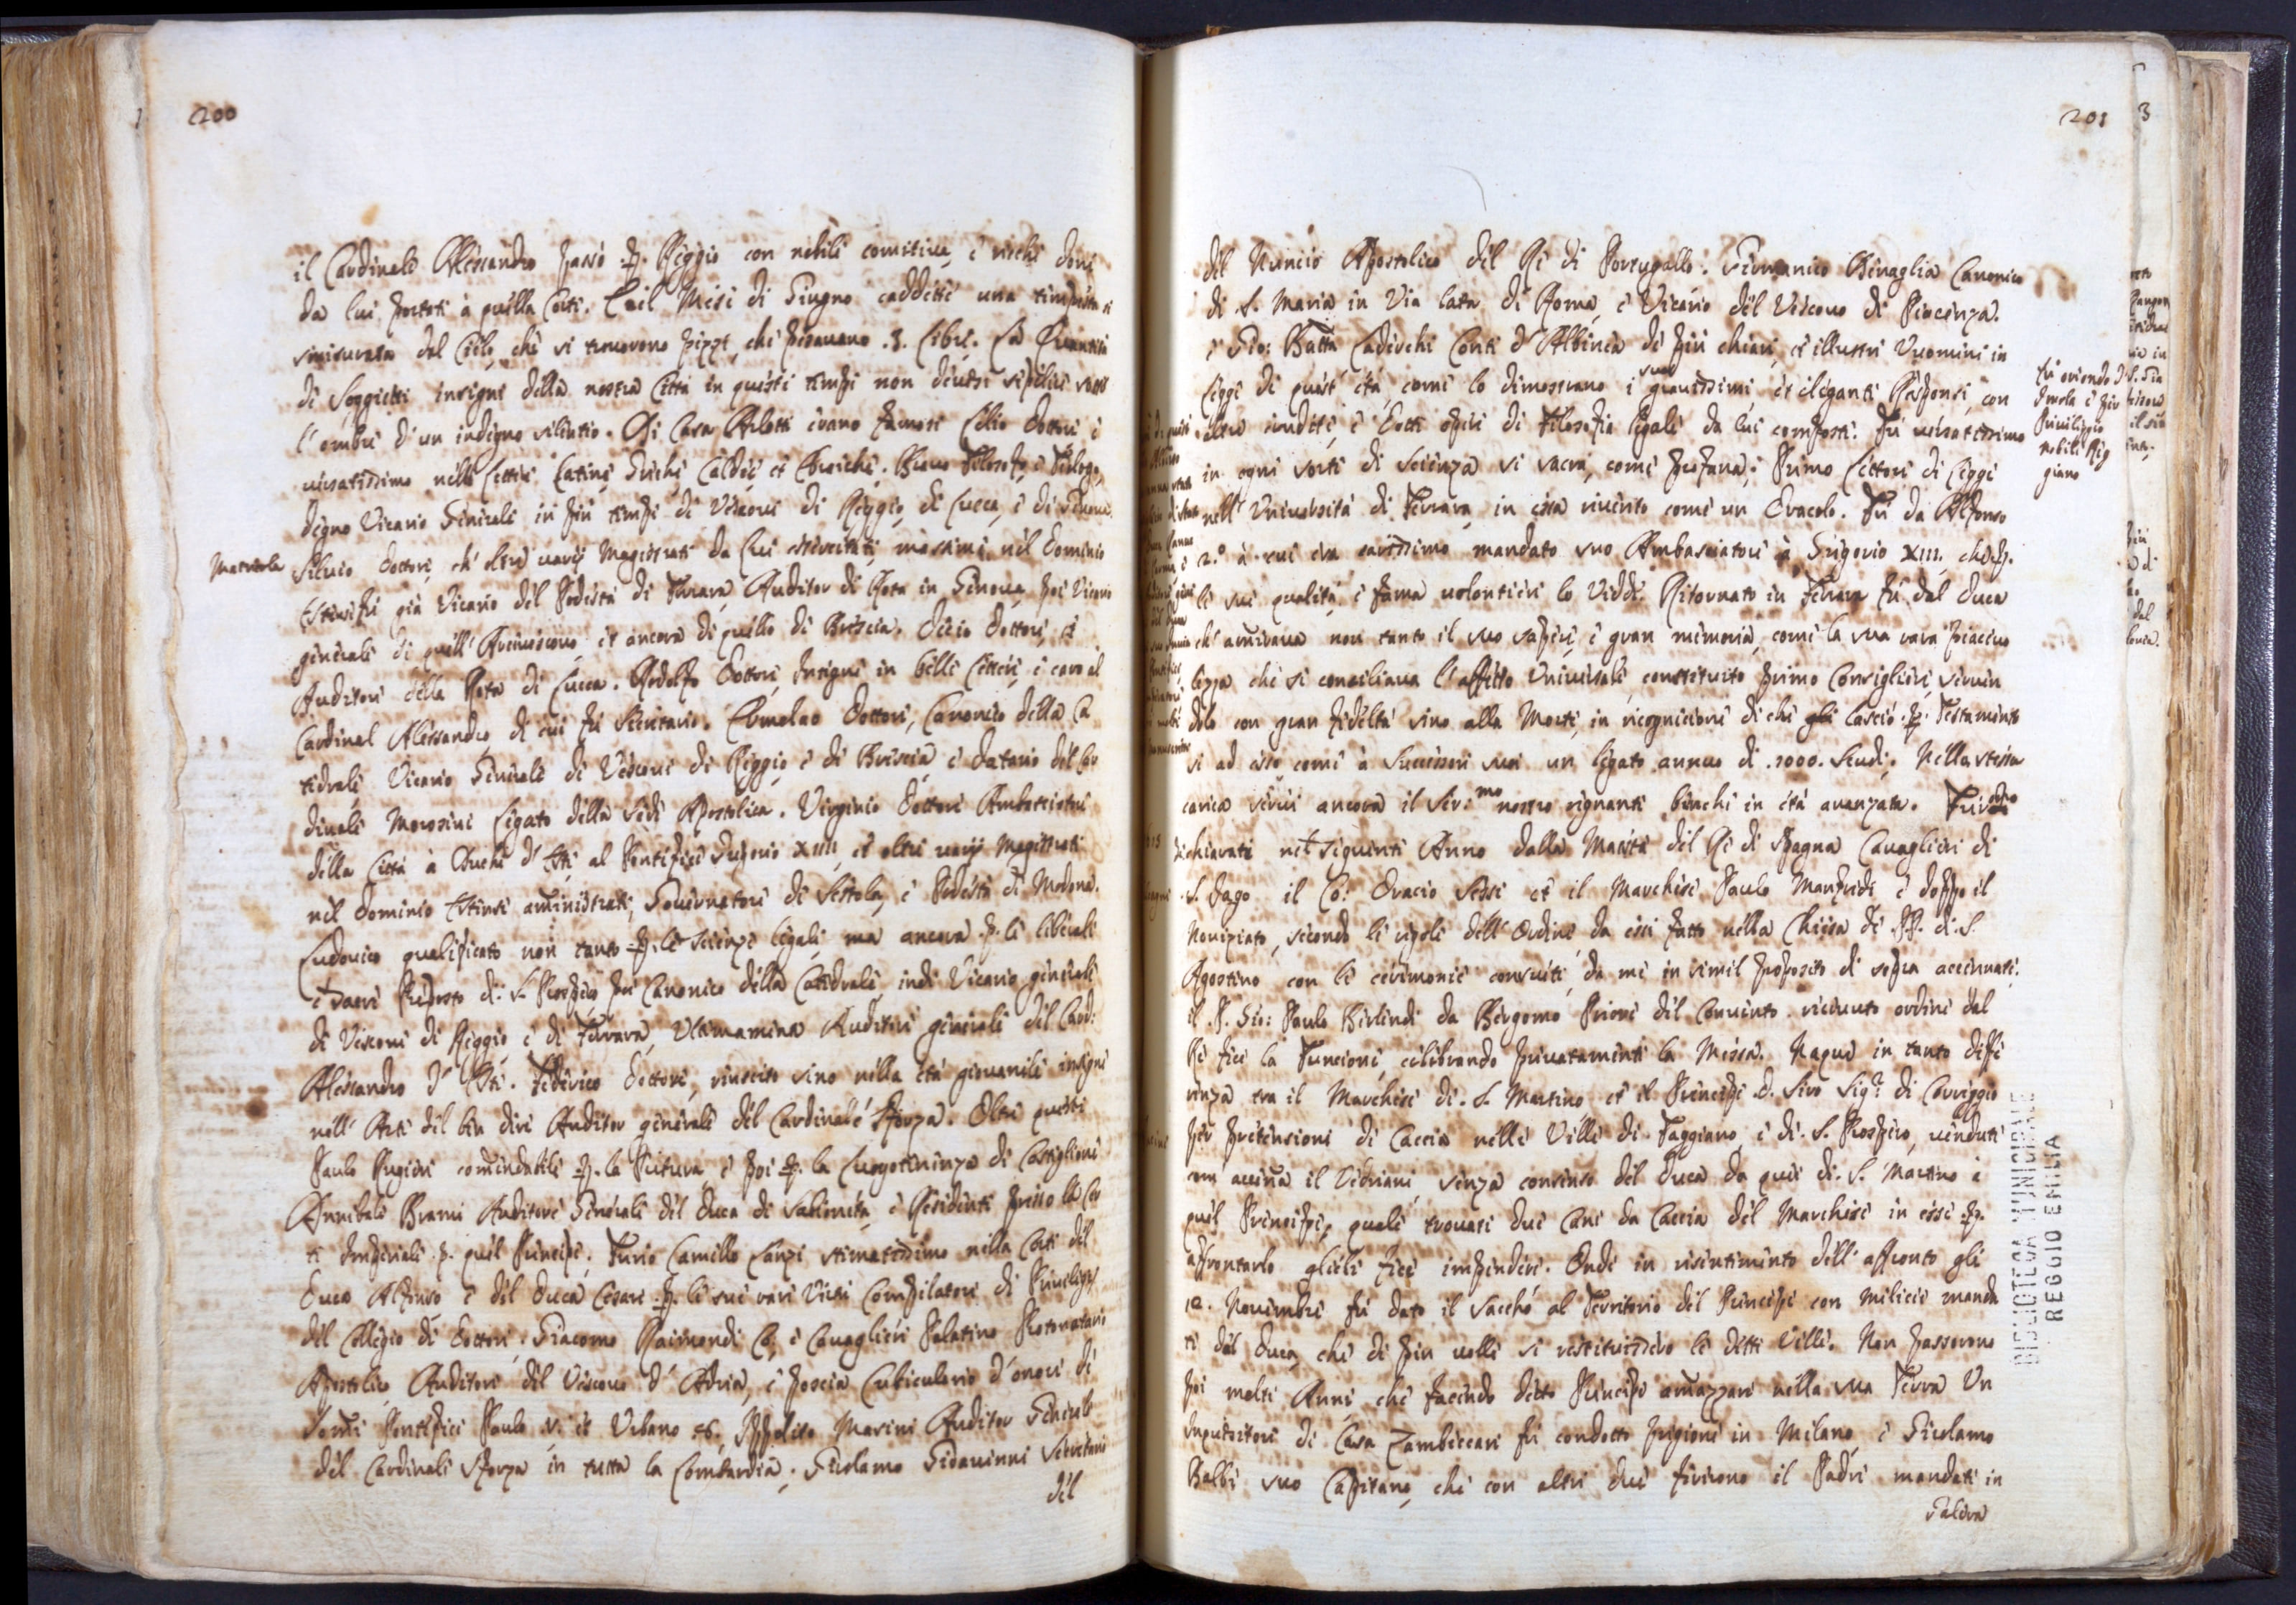 200
il Cardinale Alessandro passò p. Reggio con nobili comitive, è ricchi doni
da lui portati à quella Corte. Del Mese di Giugno caddette una tempesta si
smisurata dal Cielo, che si truovorono pezzi, che pesavano .3. libre. La Quantità
di Soggietti insigni della nostra Città in questi tempi non devesi sepelire sotto
l'ombre d'un indegno silentio. Di Casa Arlotti erano famosi Celio Dottore è
versatissimo nelle Lettere Latine, Greche, Caldee, et Ebraiche, Bravo Filosofo, è Teologo,
degno Vicario Generale in più tempi di Vescovi di Reggio, di Lucca, è di Genova.
Materola
Silvio Dottore, ch'oltre varij Magistrati da lui essercitati, massime nel Dominio
Estense fù già Vicario del Podestà di Ferrara, Auditor di Rota in Genova, poi Vicario
generale di quell' Arcivescovo, et ancora di quello di Brescia. Decio Dottore, et
Auditore della Rota di Lucca. Ridolfo Dottore, insigne in belle lettere, è caro al
Cardinal Alessandro, di cui fù Secretario. Ermolao Dottore, Canonico della Ca
tedrale, Vicario Generale di Vescovi di Reggio, è di Brescia, è Datario del Car
dinale Morosini Legato della Sede Apostolica. Virginio Dottore Ambasciatore
della Città à Duchi d'Este, al Pontefice Gregorio XIIII, et oltre varij Magistrati
nel Dominio Estense aministrati, Governatore di Sestola, è Podestà di Modona.
Ludovico qualificato non tanto p. le scienze legali, ma ancora .p. le liberali
è sacre Preposto di .S. Prospero fù Canonico della Catedrale, indi Vicario generale
di Vescovi di Reggio, è di Ferrara, Ultimamente Auditore generale del Card:
Alessandro d'Este. Federico Dottore, riuscito sino nella età giovanile insigne
nell' Arte del ben dire Auditor generale del Cardinale Sforza. Oltre questi
Paulo Rugieri comendabile .p. la Pretura, è poi .p. la Luogotenenza di Castiglione
Annibale Brami Auditore Generale del Duca di Sabioneta, è Residente presso la Cor
te Imperiale .p. quel Principe. Furio Camillo Canzi stimatissimo nella Corte del
Duca Alfonso, è del Duca Cesare .p. le sue rare Virtù Compilatore di Privilegi
del Collegio di Dottori. Giacomo Raimondi Co, è Cavagliere Palatino Protonotario
Apostolico, Auditore del Vescovo d'Adria, è poscia Cubiculario d'onore di
Sommi Pontefici Paulo .V. et Urbano .8. Ippolito Marini Auditor Generale
del Cardinale Sforza in tutta la Lombardia. Girolamo Giovannini Secretario
del
201
del Nuncio Apostolico del Re di Portugallo. Germanico Binaglia Canonico
di S. Maria in Via lata di Roma, è Vicario del Vescovo di Piacenza.
è Gio: Batta Cadecchi Conti d'Albinea de più chiari, et illustri Uuomini in
Leggi di quest' età, come lo dimostrano i suoi gravissimi, et eleganti Responsi, con
altre erudite, è Dotte opere di Filosofia legale da lui composte. Fù versatissimo
in ogni sorte di scienza si sacra, come profana; Primo Lettore di Leggi
nell' Università di Ferrara, in essa riverito come un Oracolo. Fù da Alfonso
2.º à cui era carissimo mandato suo Ambasciatore à Grigorio XIII, che .p.
le sue qualità, è fama volontieri lo Vidde. Ritornato in Ferrara fù dal Duca
ch'amirava non tanto il suo sapere, è gran memoria, come la sua rara piacevo
lezza che si conciliava l'affetto Universale, constituito primo Consigliere, serven
dolo con gran fideltà sino alla Morte, in ricognicione di che gli lasciò .p. Testamento
si ad esso, come à Successori suoi un legato annuo di .1000. Scudi. Nella stessa
carica servì ancora il Ser:mo nostro regnante benche in età avanzata. Furono
dichiarati nel seguente Anno dalla Maestà del Re di Spagna Cavaglieri di
.S. Iago il Co: Oracio Sessi et il Marchese Paulo Manfredi è doppo il
Novizziato, secondo le regole dell' Ordine, da essi fatto nella Chiesa di PP. di .S.
Agostino con le cerimonie consuete, da me in simil proposito di sopra accennate,
il .P. Gio: Paulo Berlendi da Bergomo Priore del Convento. ricevuto ordine dal
Re fece la Funcione, celebrando privatamente la Messa. Naque in tanto diffe
renza tra il Marchese di .S. Martino, et il Principe .D. Siro Sig.r di Correggio
per pretensione di Caccia nelle Ville di Faggiano, è di .S. Prospero, vendute
com' accena il Vedriani, senza consenso del Duca da quei di .S. Martino à
quel Principe, quale trovati due Cani da Caccia del Marchese in esse .p.
affrontarlo glieli fece impendere. Onde in risentimento dell' affronto gli
12. Novembre fù dato il Sacchò al Territorio del Principe con Milicie manda
te dal Duca, che di più volle si restituissero le dette Ville. Non passorono
poi molti Anni, che facendo detto Principe amazzare nella sua Terra Un
Inquisitore di Casa Zambeccari fù condotto prigione in Milano, è Girolamo
Balbi suo Capitano, che con altri due ferirono il Padre mandati in
Galera
Fù oriondo d'
Imola è per
Privileggio
nobile Reg
giano
BIBLIOTECA MUNICIPALE
REGGIO EMILIA